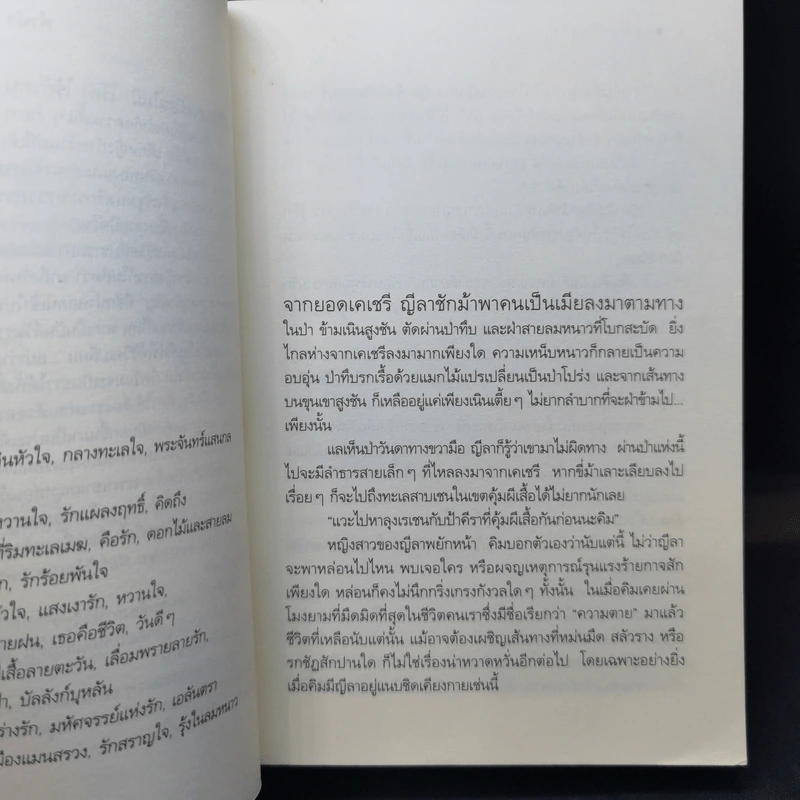 นหัวใจ, กลางทะเลใจ, พระจันทร์แสนกล
หวานใจ, รักแผลงฤทธิ์, คิดถึง
ที่ริมทะเลเมฆ, คือรัก, ดอกไม้และสายลม
ก, รักร้อยพันใจ
ัวใจ, แสงเงารัก, หวานใจ,
ายฝน, เธอคือชีวิต, วันดีๆ
เสื้อลายตะวัน, เลื่อมพรายลายรัก,
า, บัลลังก์บุหลัน
ร่างรัก, มหัศจรรย์แห่งรัก, เอลันตรา
มืองแมนสรวง, รักสราญใจ, รุ้งในลมหนาว
จากยอดเคเชรี ญีลาชักม้าพาคนเป็นเมียลงมาตามทาง
ในป่า ข้ามเนินสูงชัน ตัดผ่านป่าทึบ และฝ่าสายลมหนาวที่โบกสะบัด ยิ่ง
ไกลห่างจากเคเชรีลงมามากเพียงใด ความเหน็บหนาวก็กลายเป็นความ
อบอุ่น ป่าทึบรกเรื้อด้วยแมกไม้แปรเปลี่ยนเป็นป่าโปร่ง และจากเส้นทาง
บนขุนเขาสูงชัน ก็เหลืออยู่แค่เพียงเนินเตี้ยๆ ไม่ยากลำบากที่จะฝ่าข้ามไป...
เพียงนั้น
แลเห็นป่าวันดาทางขวามือ ญีลาก็รู้ว่าเขามาไม่ผิดทาง ผ่านป่าแห่งนี้
ไปจะมีลำธารสายเล็กๆ ที่ไหลลงมาจากเคเชรี หากขี่ม้าเลาะเลียบลงไป
เรื่อยๆ ก็จะไปถึงทะเลสาบเชนในเขตคุ้มผีเสื้อได้ไม่ยากนักเลย
“แวะไปหาลุงเรเชนกับป้าคีราที่คุ้มผีเสื้อกันก่อนนะคิม”
หญิงสาวของญีลาพยักหน้า คิมบอกตัวเองว่านับแต่นี้ ไม่ว่าญีลา
จะพาหล่อนไปไหน พบเจอใคร หรือผจญเหตุการณ์รุนแรงร้ายกาจสัก
เพียงใด หล่อนก็คงไม่นึกกริ่งเกรงกังวลใดๆ ทั้งนั้น ในเมื่อคิมเคยผ่าน
โมงยามที่มืดมิดที่สุดในชีวิตคนเราซึ่งมีชื่อเรียกว่า “ความตาย” มาแล้ว
ชีวิตที่เหลือนับแต่นั้น แม้อาจต้องเผชิญเส้นทางที่หม่นมืด สลัวราง หรือ
รกชัฏสักปานใด ก็ไม่ใช่เรื่องน่าหวาดหวั่นอีกต่อไป โดยเฉพาะอย่างยิ่ง
เมื่อคิมมีญีลาอยู่แนบชิดเคียงกายเช่นนี้